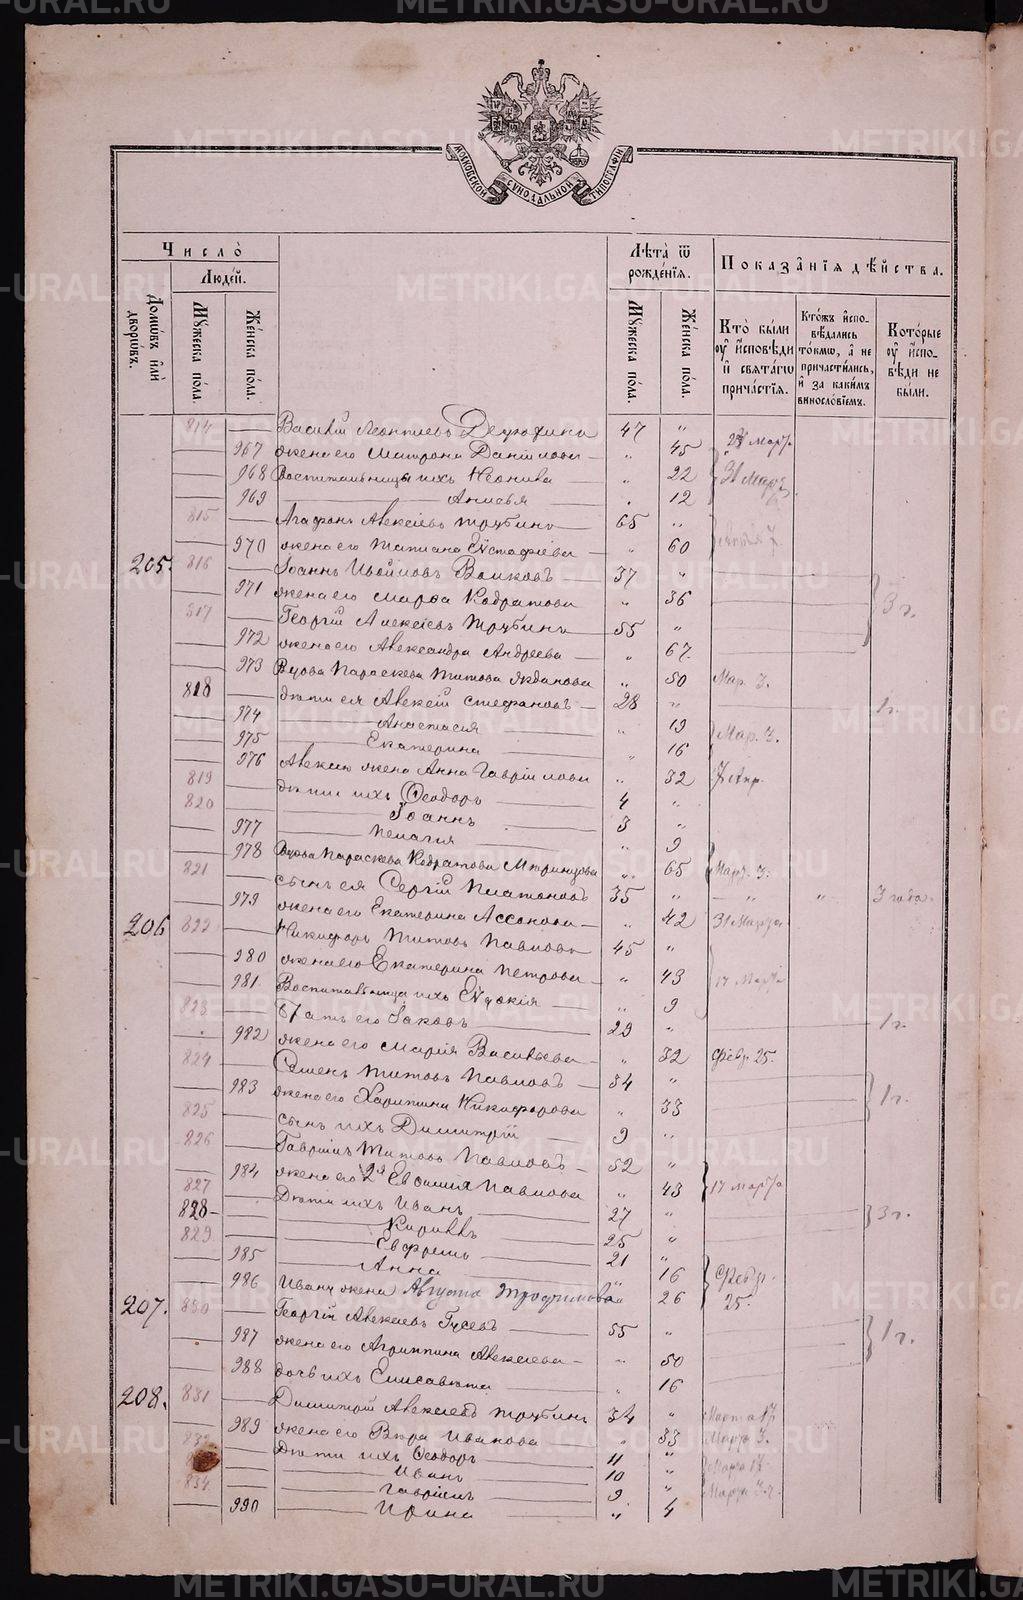 METRIKI.GASO-URAL.RU
МОСКОВСКОЙ СѴНОДАЛЬНОЙ ТИПОГРАФІИ
Число̀
Людей.
Домѡвъ илѝ дворѡвъ.
Мꙋжеска пола.
Женска пола.
Лѣта̀ ѿ рожденїѧ.
Мꙋжеска пола.
Женска пола.
Показанїѧ дѣйства.
Кто̀ были ᲂу҆ исповѣди и свѧтагѡ причастїѧ.
Ктожъ исповѣдались токмѡ, а не причастились, и за какимъ винословїемъ.
Которые ᲂу҆ исповѣди не были.
814 Василій Леонтіевъ 47 "
967 жена его Матрона Даніилова " 45
968 Воспитанницы ихъ " 22 31 Мар
969 Анисья " 12
815 Агафонъ Алексіевъ Трубинъ 65 "
970 жена его Татиана Евстафіева " 60
205. 816 Іоаннъ Волковъ 37 "
971 жена его Марѳа Кодратова " 36 3 г.
817 Георгій Алексіевъ Трубинъ 55 "
972 жена его Александра Андреева " 67.
973 Вдова Параскева Титова Жданова " 50 Мар. 3.
818 дѣти ея Алексій Стефановъ 28 " 1 г.
974 Анастасія " 19 Мар. 3.
975 Екатерина " 16
976 Алексію жена Анна Гавріилова " 32 7 Апр.
819 дѣти ихъ Ѳеодоръ 4 "
820 Іоаннъ 3 "
977 Пелагія " 9
978 Вдова Параскева Кодратова " 65 Мар. 3.
821 сынъ ея Сергій Платоновъ 35 " " " 3 года.
979 жена его Екатерина " 42 31 Марта
206 822 Никифоръ Титовъ Павловъ 45 "
980 жена его Екатерина Петрова " 43 17 Марта
981 Воспитанница ихъ Евдокія " 9
823 братъ его Іаковъ 29 " 1 г.
982 жена его Марія Васильева " 32 Февр. 25.
824 Симеонъ Титовъ Павловъ 34 "
983 жена его Харитина Никифорова " 33 1 г.
825 сынъ ихъ Димитрій 9 "
826 Гавріилъ Титовъ Павловъ 52 "
984 жена его 2я Евѳимія Павлова " 43 17 Марта
827 Дѣти ихъ Иванъ 27 "
828 Кириллъ 25 " 3 г.
829 Евфремъ 21 "
985 Анна " 16 Февр. 25.
986 Ивану жена Августа Трофимова " 26
207. 830 Георгій Алексіевъ Гусевъ 55 "
987 жена его Агриппина Алексіева " 50 1 г.
988 дочь ихъ Елисавета " 16
208. 831 Димитрій Алексіевъ Трубинъ 34 " Марта 17
989 жена его Вѣра Иванова " 33 Мар. 3.
832 Дѣти ихъ Ѳеодоръ 11 "
Иванъ 10 " Марта 17
834 Гавріилъ 9 " Марта 3.
990 Ирина " 4